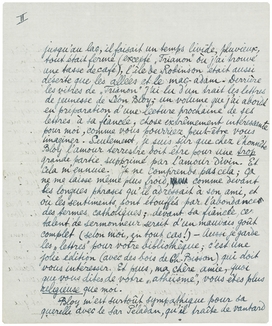 II
jusqu'au lac, il faisait un temps livide, pluvieux,
tout était fermé (excepté "Trianon" où j'ai trouvé
une tasse de café), l'île de Robinson était aussi
déserte que les allées et le mac-adam. Derrière
les vitres de "Trianon" j'ai lu d'un trait les lettres
de jeunesse de Léon Bloy; un volume que j'ai abordé
en préparation d'une lecture prochaine de ses
lettres à sa fiancée, chose extrêmement intéressante
pour moi, comme vous pourriez peut-être vous
imaginer. Seulement, je suis sûr que chez l'homme
Bloy l'amour terrestre doit être pour une trop
grande partie supprimé par l'amour divin. Et
cela m'ennuie. Je ne comprends pas cela; ça
ne me laisse même plus froid, comme devant
les longues phrases qu'il adressait à son ami, et
où les sentiments sont étouffés par l'abondance
des termes catholiques; devant sa fiancée, ce
talent de sermonneur serait d'un mauvais goût
complet (selon moi, en tout cas!) — Aussi je garde
les "lettres" pour votre bibliothèque; c'est une
jolie édition (avec des bois de Ch. Bisson) qui doit
vous intéresser. Et puis, ma chère amie, quoi
que vous dites de votre "athéisme", vous êtes plus
religieuse que moi.
Bloy m'est surtout sympathique pour sa
querelle avec le Sar Péladan, qu'il traite de vantard